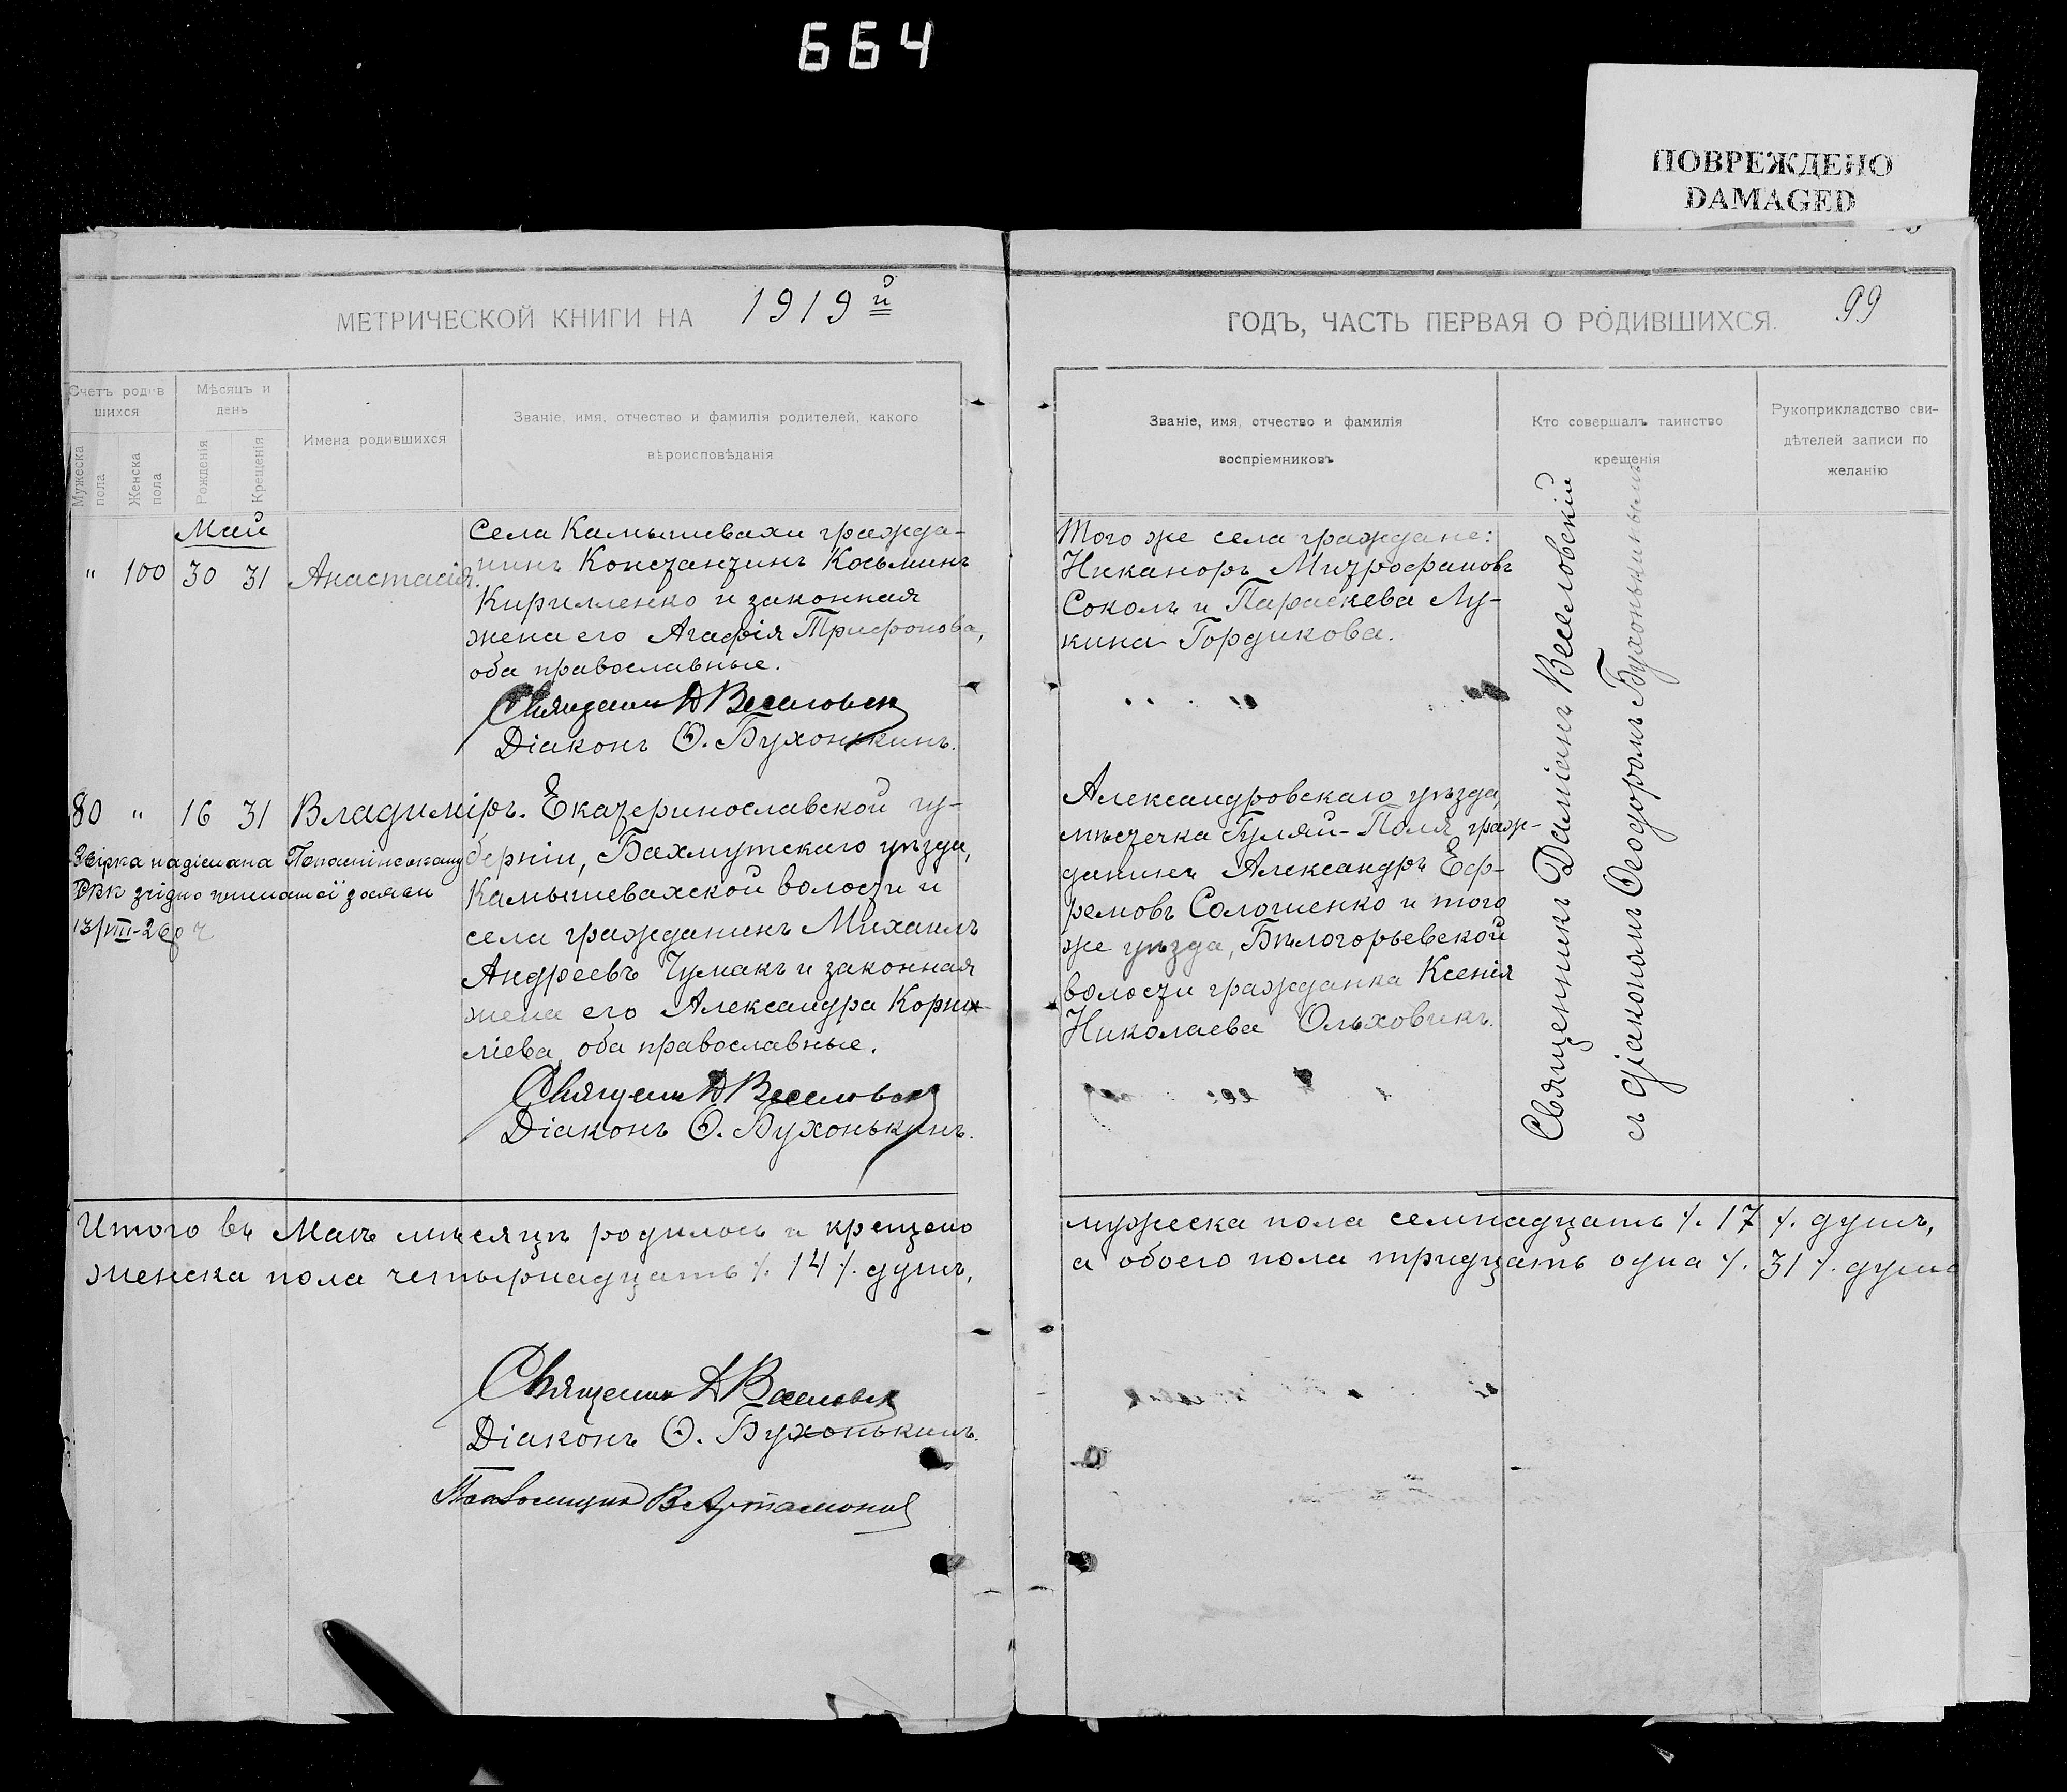 664
ПОВРЕЖДЕНО
DAMAGED
МЕТРИЧЕСКОЙ КНИГИ НА 1919й
ГОДЪ, ЧАСТЬ ПЕРВАЯ О РОДИВШИХСЯ.
99
Счетъ родив
шихся
Мужеска
пола
Женска
пола
Мѣсяцъ и
день
Рожденія
Крещенія
Имена родившихся
Званіе, имя, отчество и фамилія родителей, какого
вѣроисповѣданія
Званіе, имя, отчество и фамилія
воспріемниковъ
Кто совершалъ таинство
крещенія
Рукоприкладство сви-
дѣтелей записи по
желанію
Май
" 100 30 31 Анастасія.
Села Камышевахи гражда-
нинъ Константинъ Косьминъ
Кирилленко и законная
жена его Агафія Трифонова,
оба православные.
Священ Д Веселовск
Діаконъ Ѳ. Бухонькинъ.
Того же села граждане:
Никаноръ Митрофановъ
Соколъ и Параскева Лу-
кина Гордикова.
80 " 16 31 Владиміръ.
Екатеринославской гу-
берніи, Бахмутскаго уѣзда,
Камышевахской волости и
села гражданинъ Михаилъ
Андреевъ Чумакъ и законная
жена его Александра Корни-
ліева, оба православные.
Священ Д Веселовск
Діаконъ Ѳ. Бухонькинъ.
надіслана
РВК згідно
13/VIII-26
Александровскаго уѣзда,
мѣстечка Гуляй-Поля граж-
данинъ Александръ Еф-
ремовъ Сологиенко и того
же уѣзда, Бѣлогорьевской
волости гражданка Ксенія
Николаева Ольховикъ.
Священникъ Даміанъ Веселовскій
съ діакономъ Ѳеодоромъ Бухонькинымъ
Итого въ Маѣ мѣсяцѣ родилось и крещено
женска пола четырнадцать /. 14 /. душъ,
мужеска пола семнадцать /. 17 /. душъ,
а обоего пола тридцать одна /. 31 /. душа
Священник Д Веселовск
Діаконъ Ѳ. Бухонькинъ.
Псаломщик В Артамонов